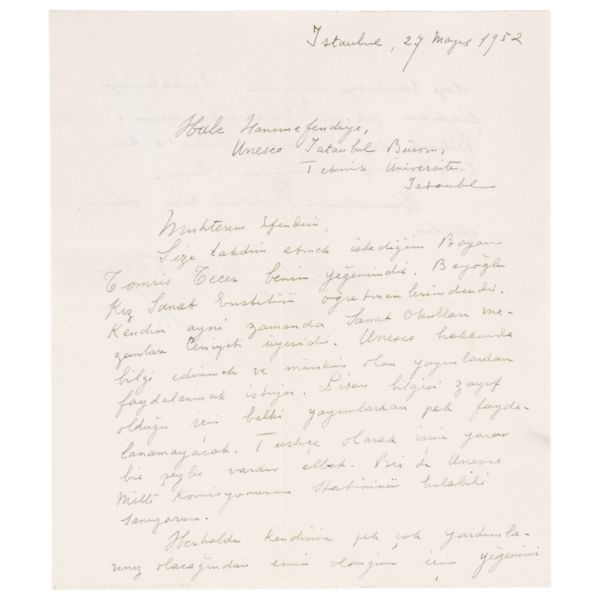 Istanbul, 27 Mayıs 1952
Hale Hanımefendiye,
Unesco Istanbul Bürosu,
Teknik Üniversite
Istanbul
Muhterem Efendim,
Size takdim etmek istediğim Bayan
Tomris Tecer benim yeğenimdir. Beyoğlu
Kız Sanat Enstitüsü öğretmenlerindendir.
Kendisi ayni zamanda Sanat Okulları me-
zunları Cemiyeti üyesidir. Unesco hakkında
bilgi edinmek ve mümkün olan yayımlardan
faydalanmak istiyor. Lisan bilgisi zayıf
olduğu için belki yayımlardan pek fayda-
lanamayacak. Türkçe olarak işine yarar
bir şeyler vardır elbet. Bir de Unesco
Milli Komisyonunun statüsünü bulabilir
sanıyorum.
Herhalde kendisine pek çok yardımla-
rınız olacağından emin olduğum için yeğenimi